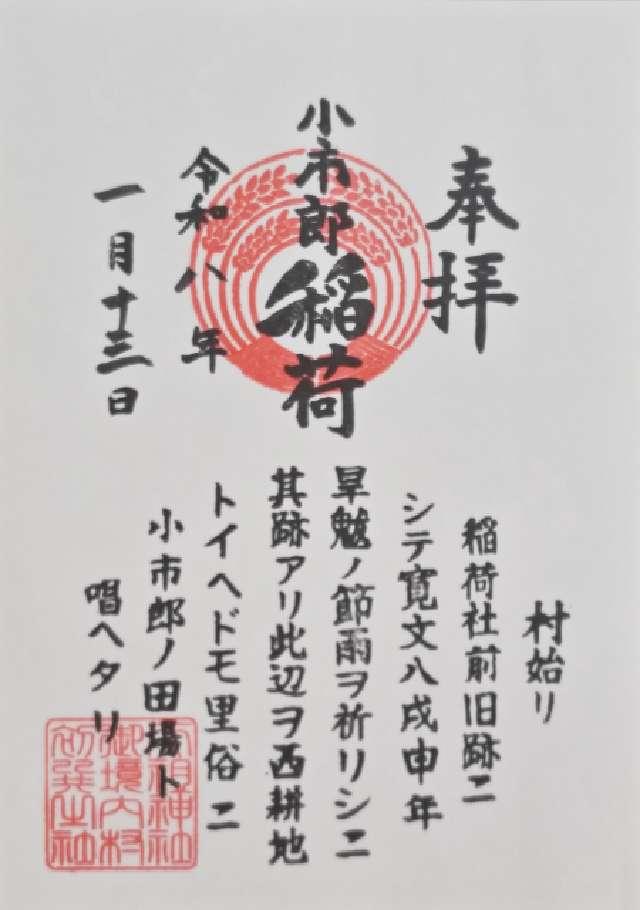 奉拝
小市郎稲荷
令和八年
一月十三日
村始リ
稲荷社前旧跡ニ
シテ寛文八戌申年
旱魃ノ節雨ヲ祈リシニ
其跡アリ此辺ヲ西耕地
トイヘドモ里俗ニ
小市郎ノ田場ト
唱ヘタリ
御境内村